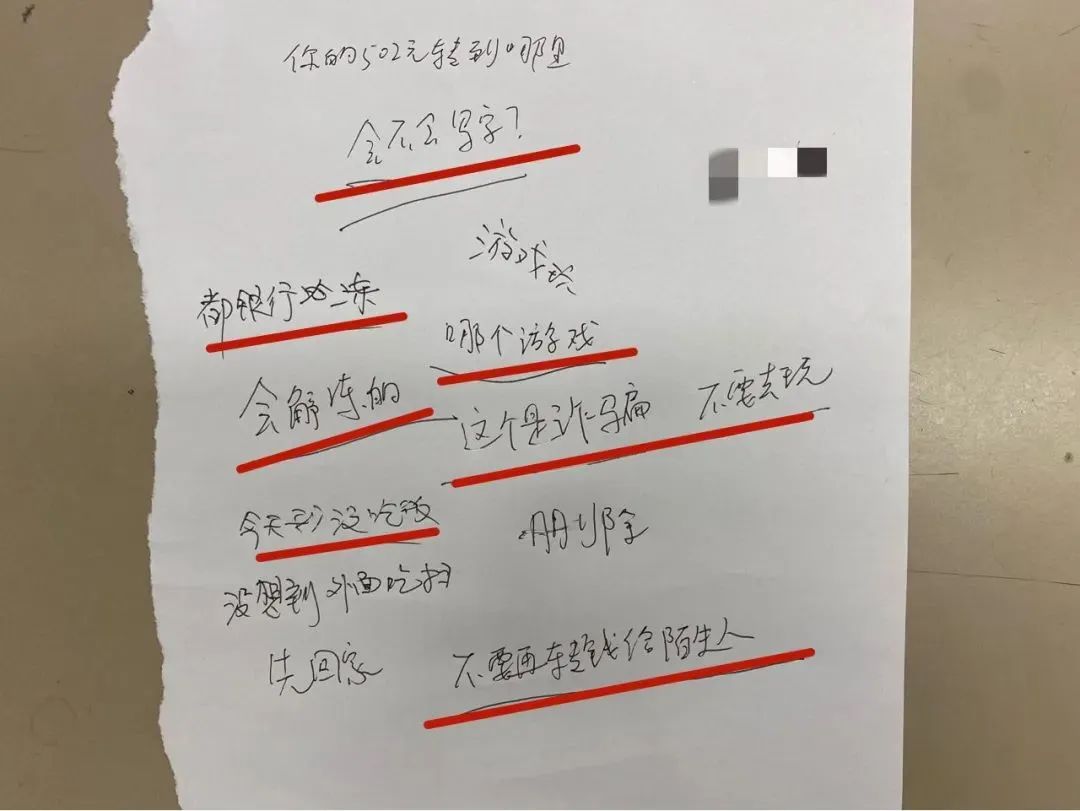 你的502元转到哪里
会不会写字?
游戏玩
都银行冻
哪个游戏
会解冻的
这个是诈骗 不要去玩
今天到没吃饭
删除
没想到外面吃
先回家
不要再转钱给陌生人